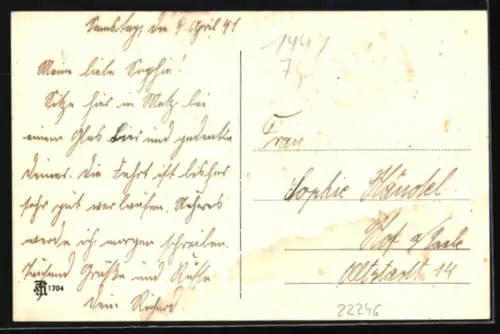 Samstag, den 4 April 41
Meine liebe Sophie!
Sitze hier in Metz bei
einem Glas Bier und gedenke
Deiner. Die Fahrt ist bisher
sehr gut verlaufen. Näheres
werde ich morgen schreiben.
Tausend Grüße und Küsse
Dein Richard
1704
1441
7
Frau
Sophie Händel
Hof a/Saale
Altstadt 14
22246